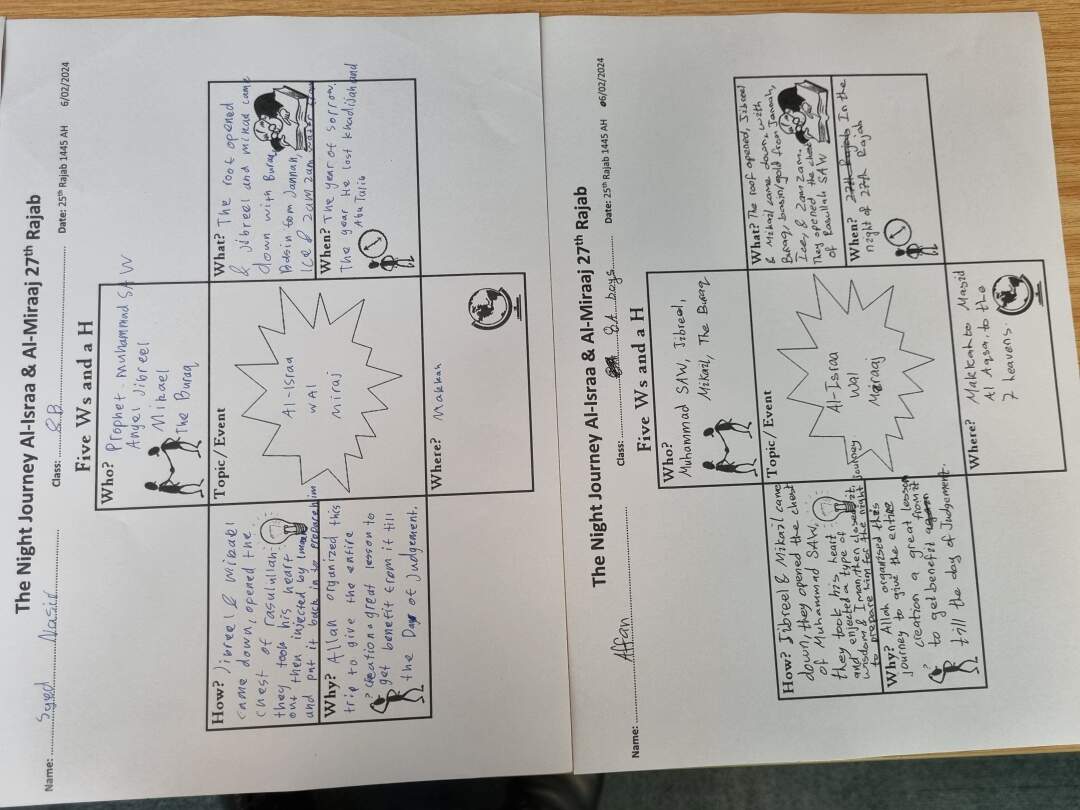 The Night Journey Al-Israa & Al-Miraaj 27th Rajab
Name: Syed Nasir Class: 8B Date: 25th Rajab 1445 AH 6/02/2024
Five Ws and a H
Who? Prophet Muhammad SAW
Angel Jibreel
Mikael
The Buraq
How? Jibreel & mikail
came down, opened the
chest of rasulullah
they took his heart
out then injected by
and put it back in to prepare him
Topic/Event
Al-Israa
wal
miraj
What? The roof opened
& jibreel and mikail came
down with Buraq
Basin from Jannah,
Ice & zam zam water from
Why? Allah organized this
trip to give the entire
creation a great lesson to
get benefit from it till
the Day of judgement.
Where? Makkah
When? The year of sorrow.
The year He lost Khadijah and
Abu Talib
The Night Journey Al-Israa & Al-Miraaj 27th Rajab
Name: Affan Class: 8A boys Date: 25th Rajab 1445 AH 06/02/2024
Five Ws and a H
Who?
Muhammad SAW, Jibreel,
Mikail, The Buraq
How? Jibreel & Mikail came
down, they opened the chest
of Muhammad SAW,
they took his heart
and enjected a type of
wisdom & Iman, then closed it,
to prepare him for the night journey
Topic/Event
Al-Israa
wal
Meraaj
What? The roof opened, Jibreel
& Mikail came down, with
Buraq, basin/gold from Jannah,
Ice, & Zamzam.
They opened the chest
of Rasullah SAW
Why? Allah organised this
journey to give the entire
creation a great lesson
to get benefit from it
till the day of Judgement.
Where? Makkah to Masjid
Al Aqsa, to the
7 heavens.
When? 27th Rajab In the
night of 27th Rajab